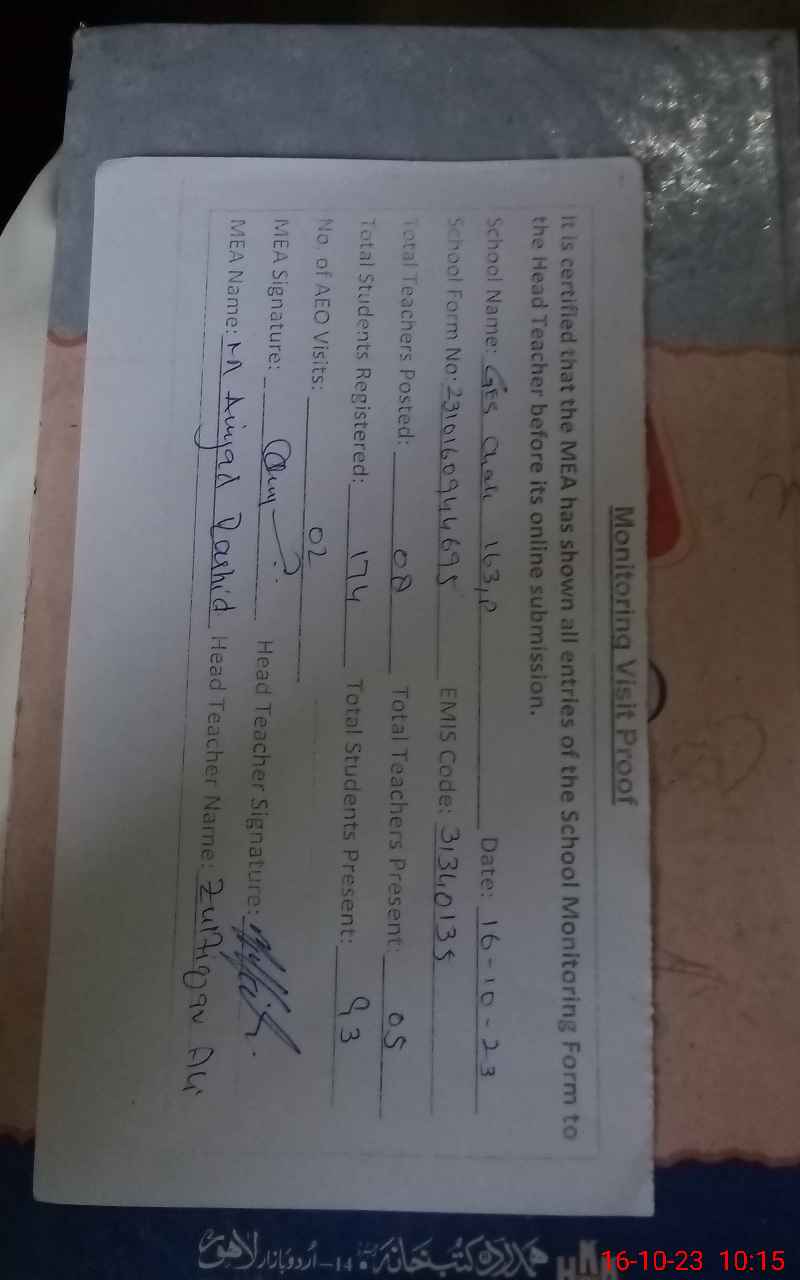 Monitoring Visit Proof
It is certified that the MEA has shown all entries of the School Monitoring Form to
the Head Teacher before its online submission.
School Name: GES Chak 163,P Date: 16-10-23
School Form No: 2310160944695 EMIS Code: 31340135
Total Teachers Posted: 08 Total Teachers Present: 05
Total Students Registered: 174 Total Students Present: 93
No. of AEO Visits: 02
MEA Signature: Head Teacher Signature:
MEA Name: M Amjad Rashid Head Teacher Name: Zulfiqar Ali
ہمدرد کتب خانہ 14-اُردو بازار لاہور
16-10-23 10:15